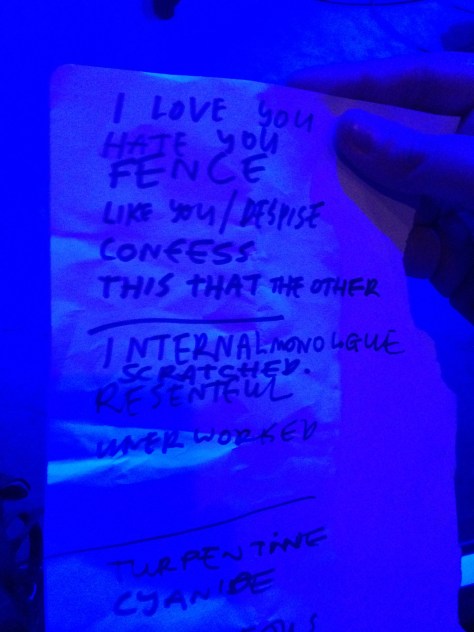 I LOVE YOU
HATE YOU
FENCE
LIKE YOU / DESPISE
CONFESS
THIS THAT THE OTHER
INTERNAL MONOLOGUE
SCRATCHED.
RESENTFUL
WORKED
TURPENTINE
CYANIDE